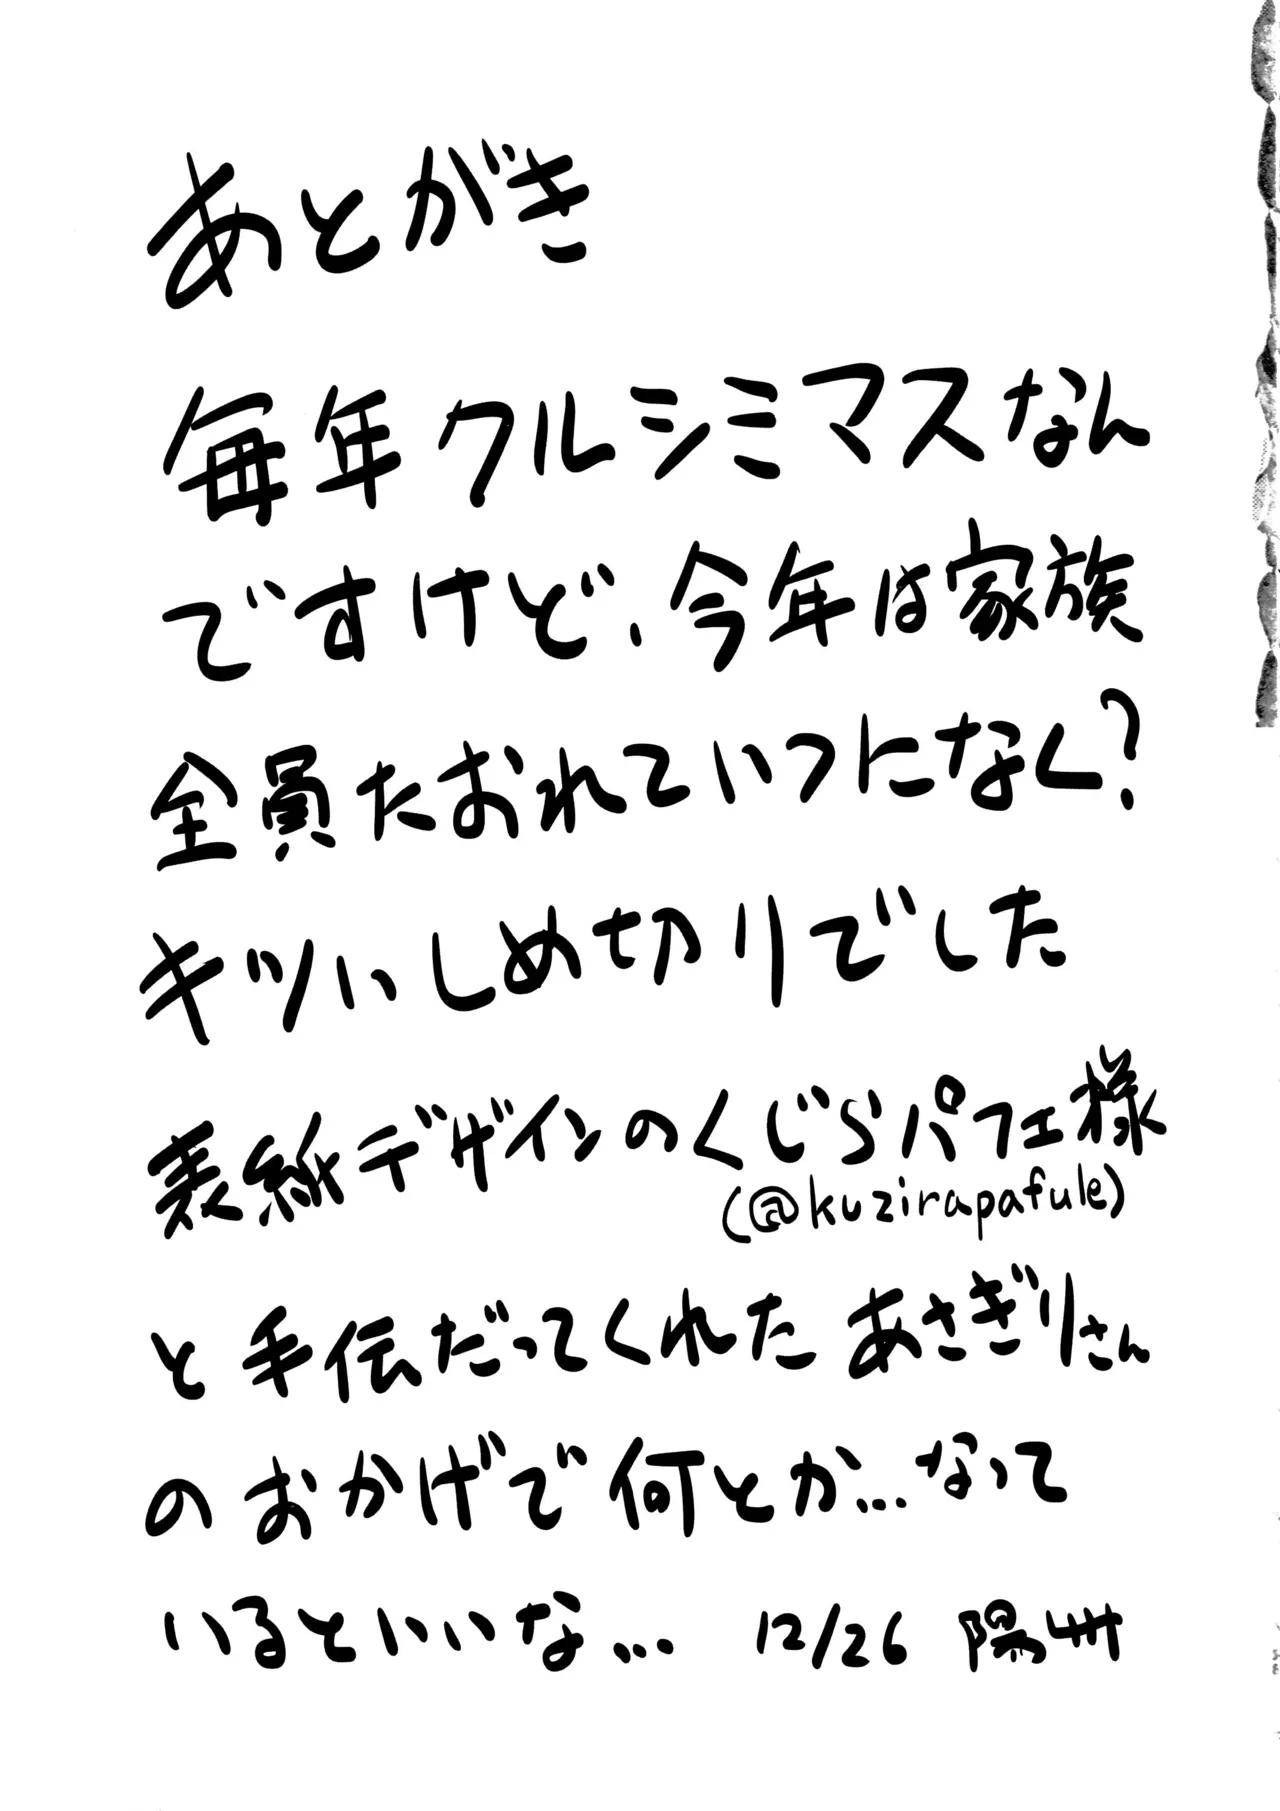 あとがき
毎年クルシミマスなん
ですけど、今年は家族
全員たおれていつになく?
キツいしめ切りでした
表紙デザインのくじらパフェ様
(@kuzirapafule)
と手伝だってくれたあさぎりさん
のおかげで何とか...なって
いるといいな... 12/26 陽州